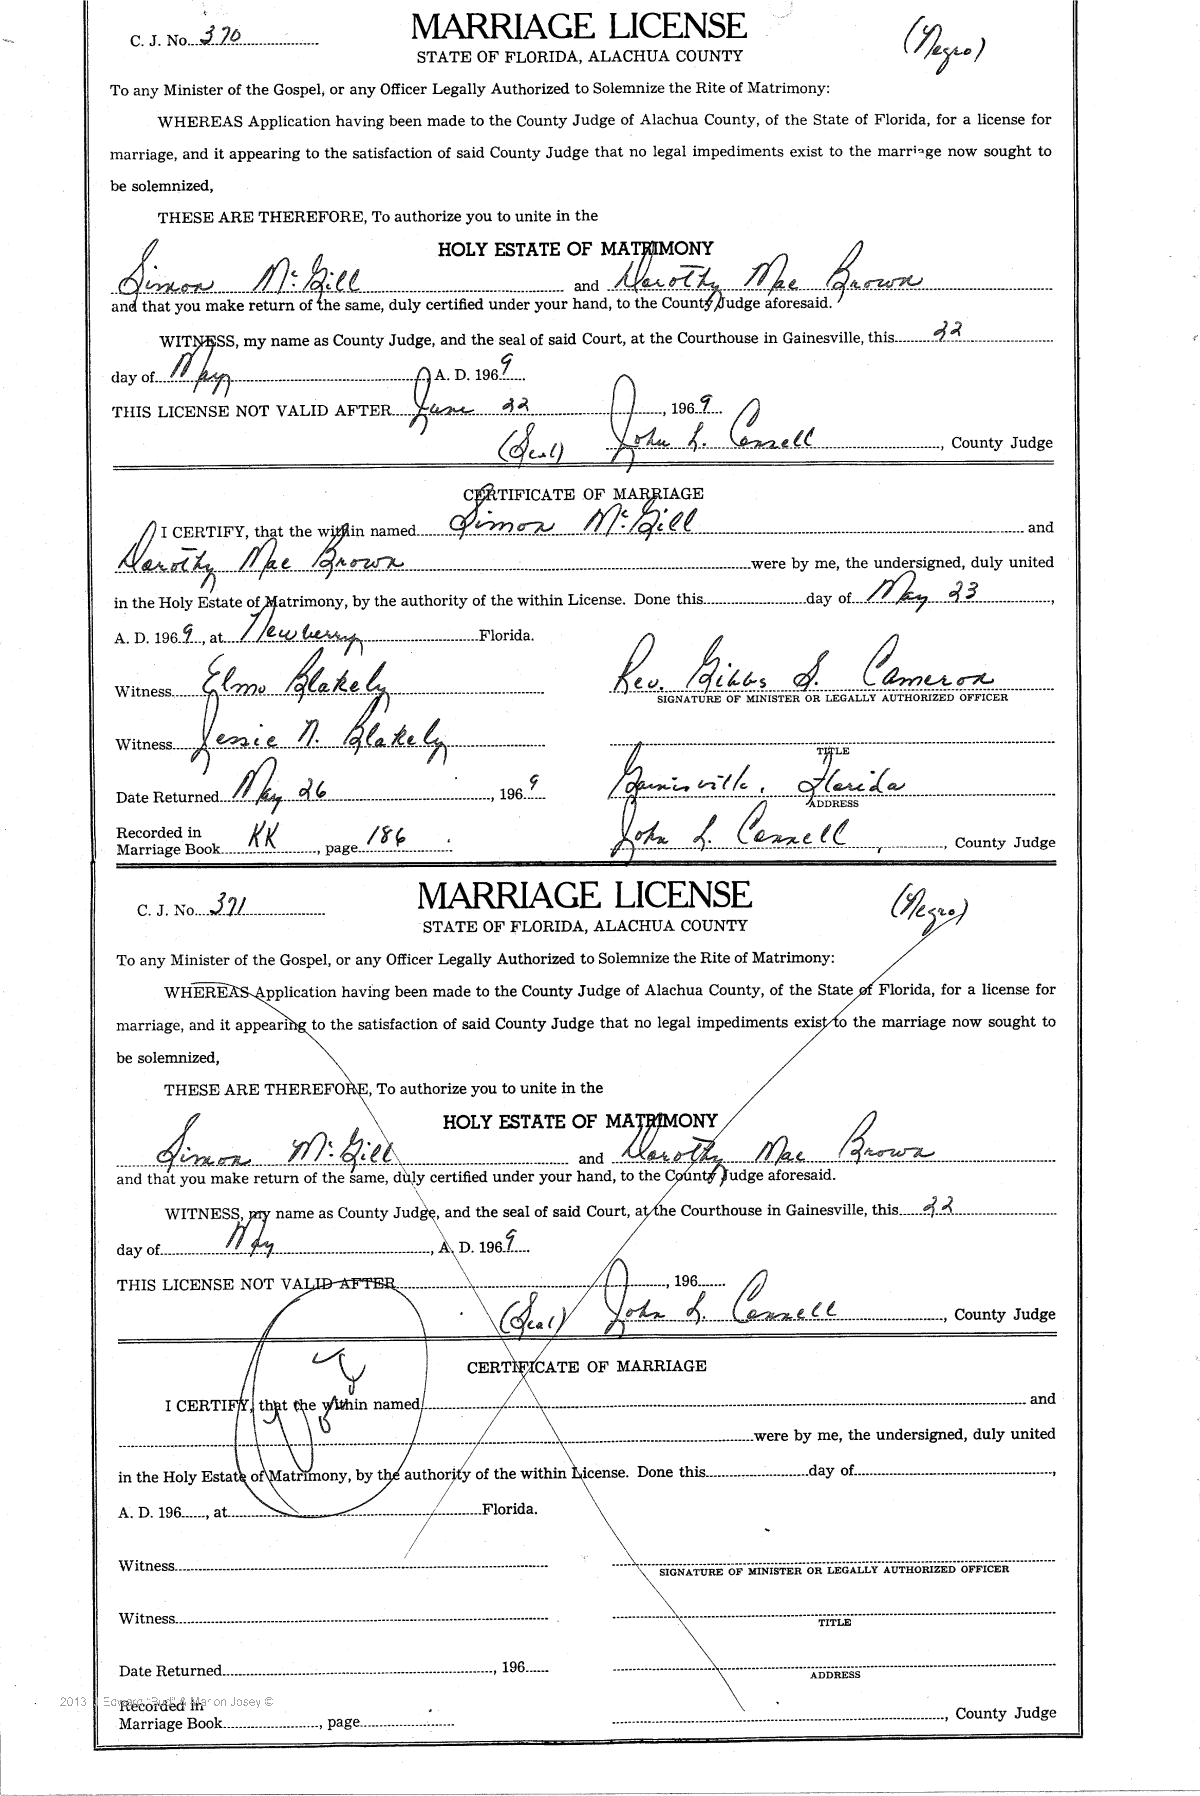 C. J. No. 370
MARRIAGE LICENSE
(Negro)
STATE OF FLORIDA, ALACHUA COUNTY
To any Minister of the Gospel, or any Officer Legally Authorized to Solemnize the Rite of Matrimony:
WHEREAS Application having been made to the County Judge of Alachua County, of the State of Florida, for a license for
marriage, and it appearing to the satisfaction of said County Judge that no legal impediments exist to the marriage now sought to
be solemnized,
THESE ARE THEREFORE, To authorize you to unite in the
HOLY ESTATE OF MATRIMONY
Simon McGill and Dorothy Mae Brown
and that you make return of the same, duly certified under your hand, to the County Judge aforesaid.
WITNESS, my name as County Judge, and the seal of said Court, at the Courthouse in Gainesville, this 22
day of May A. D. 1969
THIS LICENSE NOT VALID AFTER June 22, 1969
(Seal) John L. Connell, County Judge
CERTIFICATE OF MARRIAGE
I CERTIFY, that the within named Simon McGill and
Dorothy Mae Brown were by me, the undersigned, duly united
in the Holy Estate of Matrimony, by the authority of the within License. Done this day of May 23,
A. D. 1969, at Newberry Florida.
Witness Elmo Blakely Rev. Gibbs S. Cameron
SIGNATURE OF MINISTER OR LEGALLY AUTHORIZED OFFICER
Witness Jessie N. Blakely
TITLE
Date Returned May 26, 1969 Gainisville, Florida
ADDRESS
Recorded in
Marriage Book KK, page 186 John L. Connell, County Judge
C. J. No. 371
MARRIAGE LICENSE
(Negro)
STATE OF FLORIDA, ALACHUA COUNTY
To any Minister of the Gospel, or any Officer Legally Authorized to Solemnize the Rite of Matrimony:
WHEREAS Application having been made to the County Judge of Alachua County, of the State of Florida, for a license for
marriage, and it appearing to the satisfaction of said County Judge that no legal impediments exist to the marriage now sought to
be solemnized,
THESE ARE THEREFORE, To authorize you to unite in the
HOLY ESTATE OF MATRIMONY
Simon McGill and Dorothy Mae Brown
and that you make return of the same, duly certified under your hand, to the County Judge aforesaid.
WITNESS, my name as County Judge, and the seal of said Court, at the Courthouse in Gainesville, this 22
day of May, A. D. 1969
THIS LICENSE NOT VALID AFTER, 196
(Seal) John L. Connell, County Judge
CERTIFICATE OF MARRIAGE
I CERTIFY, that the within named and
were by me, the undersigned, duly united
in the Holy Estate of Matrimony, by the authority of the within License. Done this day of,
A. D. 196, at Florida.
Witness
SIGNATURE OF MINISTER OR LEGALLY AUTHORIZED OFFICER
Witness
TITLE
Date Returned, 196
ADDRESS
2013 Edward "Bud" & Marion Josey ©
Recorded in
Marriage Book, page, County Judge